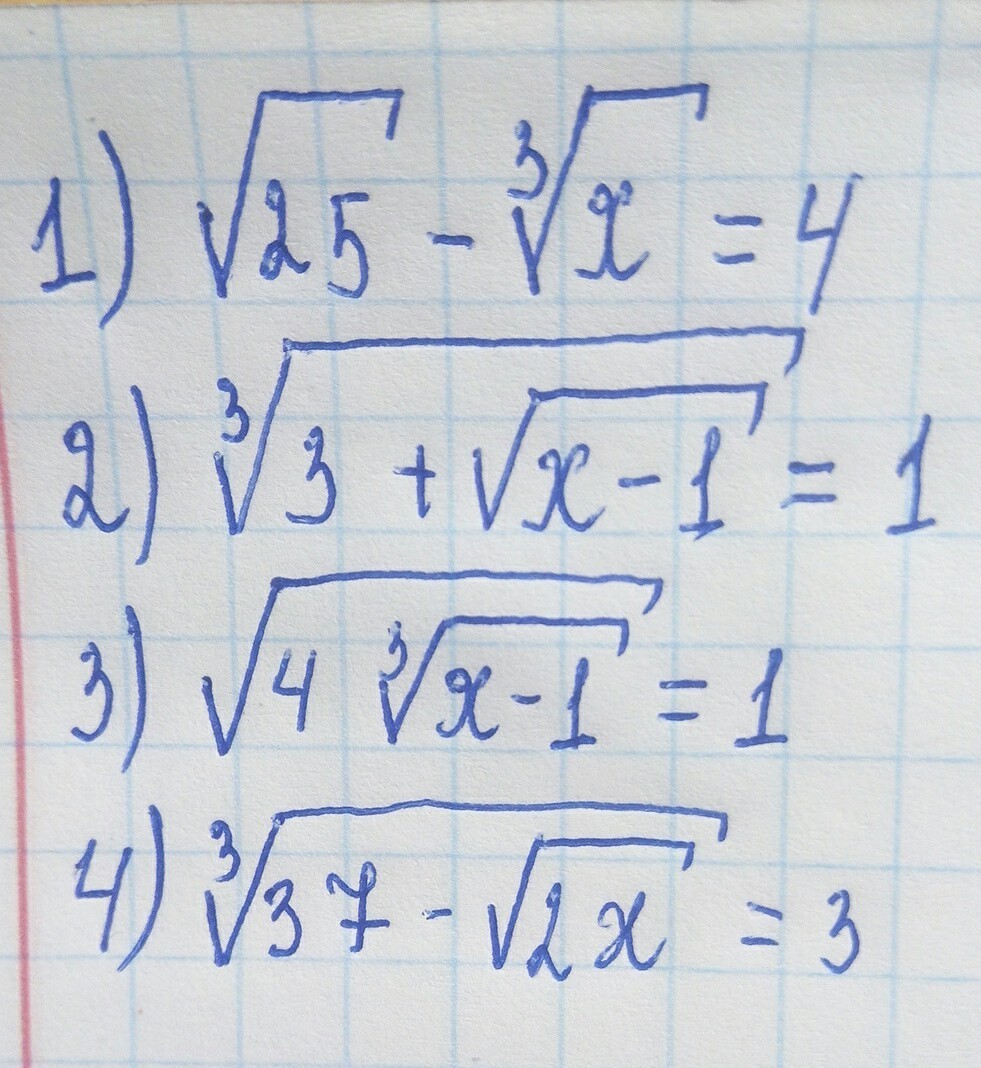 1) √25 - ∛x = 4
2) ∛(3 + √(x-1)) = 1
3) √(4 ∛(x-1)) = 1
4) ∛(37 - √(2x)) = 3